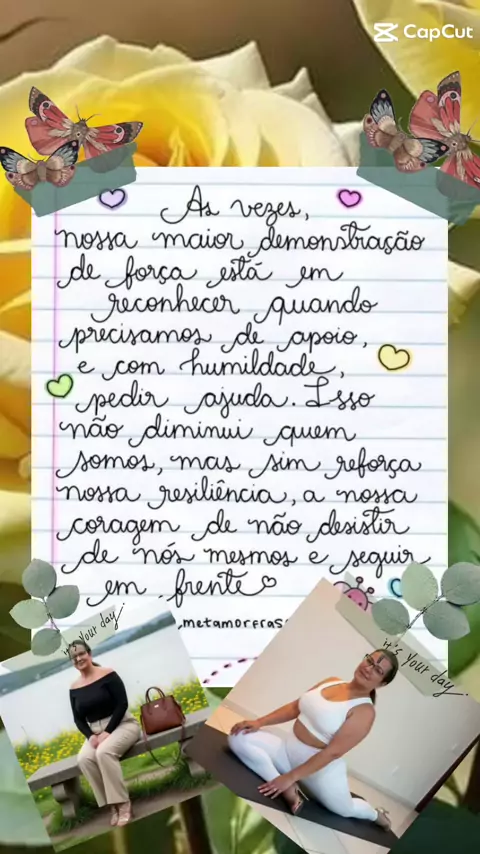 CapCut
As vezes,
nossa maior demonstração
de força está em
reconhecer quando
precisamos de apoio,
e com humildade,
pedir ajuda. Isso
não diminui quem
somos, mas sim reforça
nossa resiliência, a nossa
coragem de não desistir
de nós mesmos e seguir
em frente
it's Your day
it's Your day